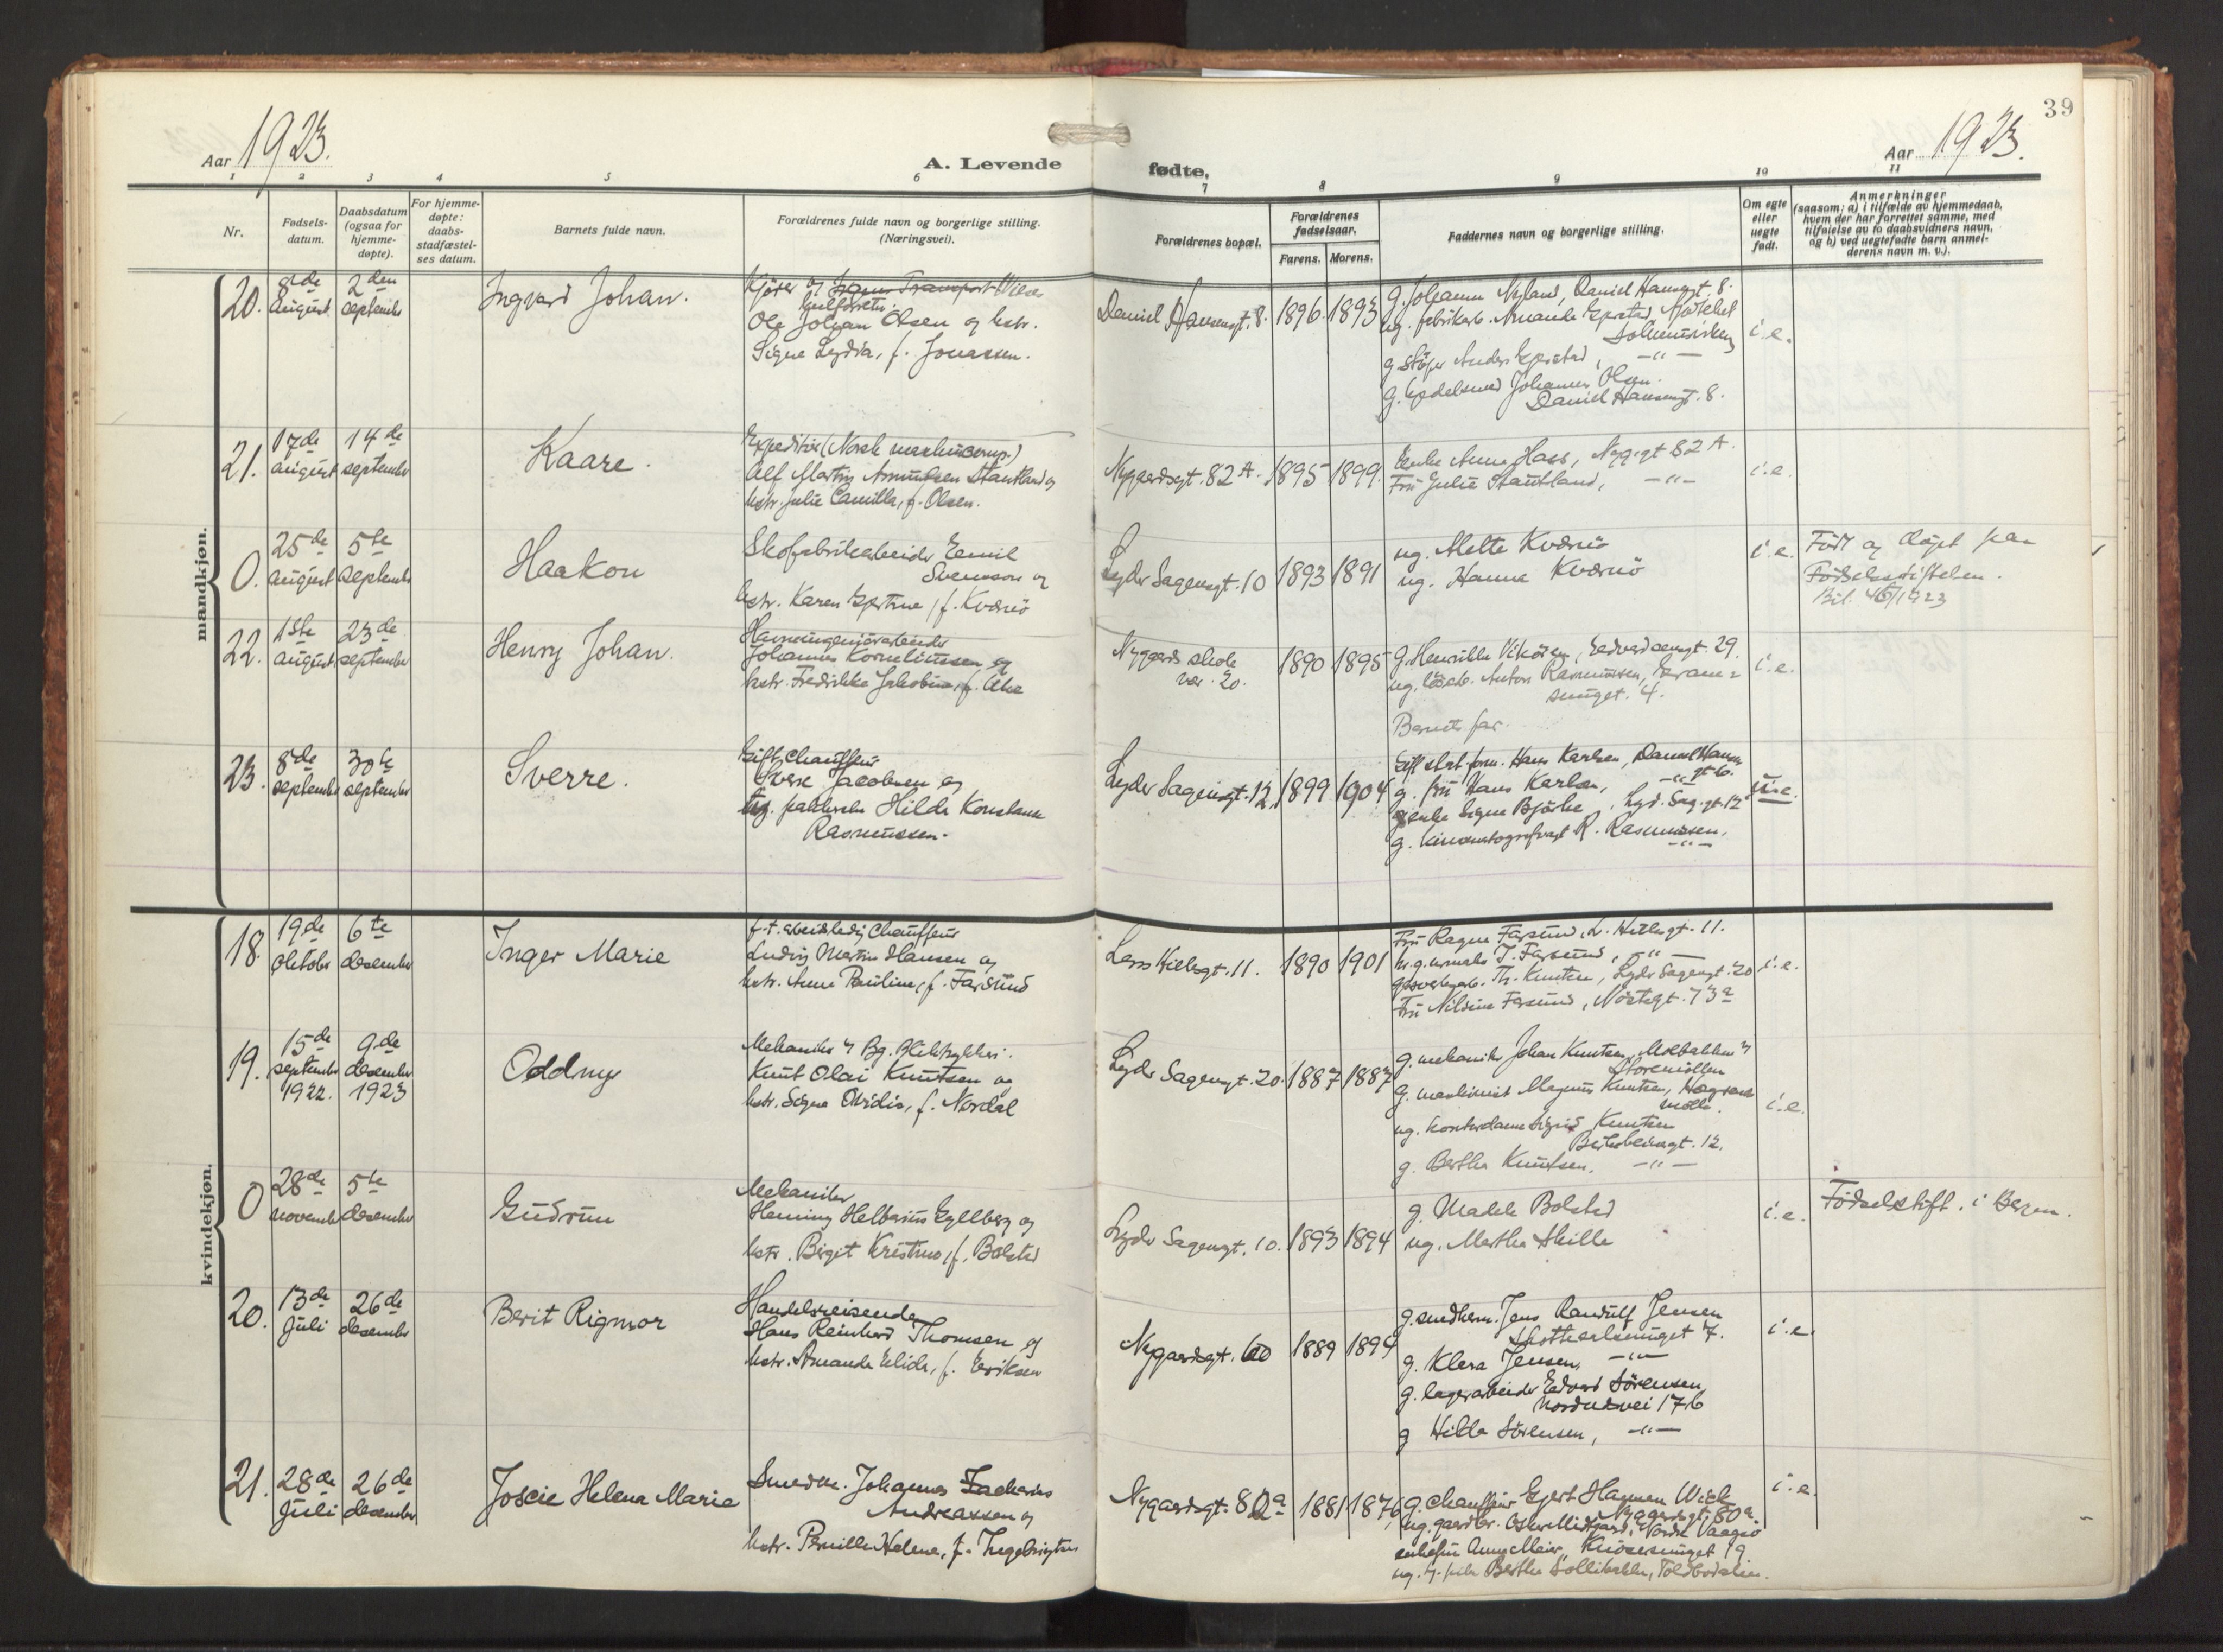 39
Aar 1923.
A. Levende
fødte,
Aar 1923.
1 2 3 4 5 6 7 8 9 10 11
Nr.
Fødsels-
datum.
Daabsdatum
(ogsaa for
hjemme-
døpte).
For hjemme-
døpte:
daabs-
stadfæstel-
ses datum.
Barnets fulde navn.
Forældrenes fulde navn og borgerlige stilling.
(Næringsvei).
Forældrenes bopæl.
Forældrenes
fødselsaar.
Farens. Morens.
Faddernes navn og borgerlige stilling.
Om egte
eller
uegte
født.
Anmerkninger
(saasom: a) i tilfælde av hjemmedaab,
hvem der har forrettet samme, med
tilføielse av to daabsvidners navn,
og b) ved uegtefødte barn anmel-
derens navn m. v.).
mandkjøn.
20.
8de
august
2den
september
Ingvard Johan.
Ole Johan Olsen og hstr.
Signe Lydia, f. Jonassen.
Daniel Hansensgt. 8.
1896 1893
g. Johanna Nyland, Daniel Hansgt. 8.
Solheimsviken
g. Johannes Olsen.
Daniel Hansengt. 8.
i.e.
21.
17de
august
14de
september
Kaare.
Alf Martin Amundsen Stautland og
hstr. Julie Camilla, f. Olsen.
Nygaardsgt. 82 A.
1895 1899
Enke Anna Hass, Nygt 82 A.
Fru Julie Stautland, -"-
i.e.
0.
25de
august
5te
september
Haakon
Skofabrikarbeider Emil
Svensson og
hstr. Karen Gjertine, f. Kvernø
Lyder Sagensgt. 10
1893 1891
ug. Mette Kvernø
ug. Hanna Kvernø
i.e.
Født og døpt paa
Fødselsstiftelsen.
Bil. 46/1923
22.
1ste
august
23de
september
Henry Johan.
Havneingeniørarbeider
Johannes Korneliussen og
hstr. Fredrikke Jakobine, f. Aha
Nygaards skole
vær. 20.
1890 1895
ug. Anton Rasmussen,
smuget. 4.
Barnets far.
i.e.
23.
8de
september
30te
september
Sverre.
Gift chauffør
Sverre Jacobsen og
ug. Hilda Konstanse
Rasmussen.
Lyder Sagensgt. 12.
1899 1904
Hans Karlsen, Daniel Hansen
gt 6.
g. fru Hans Karlsen, -"-
enke Signe Bjørke, Lyd. Sag.gt. 12
g. kinematografvagt R. Rasmussen,
-"-
u.e.
kvindekjøn.
18.
19de
oktober
6te
desember
Inger Marie
f.t. arbeidsledig chauffør
Ludvig Martin Hansen og
hstr. Anna Pauline, f. Farsund
Lars Hillesgt. 11.
1890 1901
Fru Ragna Farsund, L. Hillesgt. 11.
T. Farsund, -"-
Th. Knutsen, Lyder Sagensgt. 20
Fru Nilsine Farsund, Nøstegt. 73a
i.e.
19.
15de
september
1922.
9de
desember
1923
Oddny
Knut Olai Knutsen og
hstr. Signe Ovidia, f. Nordal
Lyder Sagensgt. 20.
1887 1887
g. mekaniker Johan Knutsen, Møbakken
Storemøllen
g. maskinist Magnus Knutsen,
ug. kontordame Sigrid Knutsen
g. Bertha Knutsen. -"-
i.e.
0
28de
november
5te
desember
Gudrun
Mekaniker
Henning Helbærius Gyllberg og
hstr. Birgit Kristine, f. Bolstad
Lyder Sagensgt. 10.
1893 1894
g. Madele Bolstad
ug. Martha Skille
i.e.
Fødselsstift. i Bergen.
20.
13de
juli
26de
desember
Berit Rigmor
Handelsreisende
Hans Reinhard Thomsen og
hstr. Amanda Elida, f. Eriksen
Nygaardsgt. 60
1889 1894
g. Jens Randulf Jensen
smuget 7.
g. Klara Jensen, -"-
g. lagerarbeider Edvard Sørensen,
Nordnesvei 17b
g Hilda Sørensen, -"-
i.e.
21.
28de
juli
26de
desember
Joseie Helena Marie
Smedm. Johannes Zacharias
Andreassen og
hstr. Pernille Helene, f. Ingebrigtsen
Nygaardsgt. 80a
1881 1876
g. chauffør Gjert Hansen Wick
Nygaardsgt. 80a.
Nordre Vaagsø
enkefru Anna Meier, Knøsesmuget 19
ug. Berthe Sollibakke, Toldbodalm.
i.e.